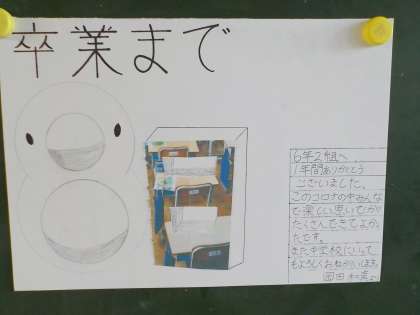 卒業まで
6年2組へ
1年間ありがとう
ございました。
このコロナの中みんな
で楽しい思いでが
たくさんできてよかっ
たです。
また中学校にいって
もよろしくおねがいします
岡田